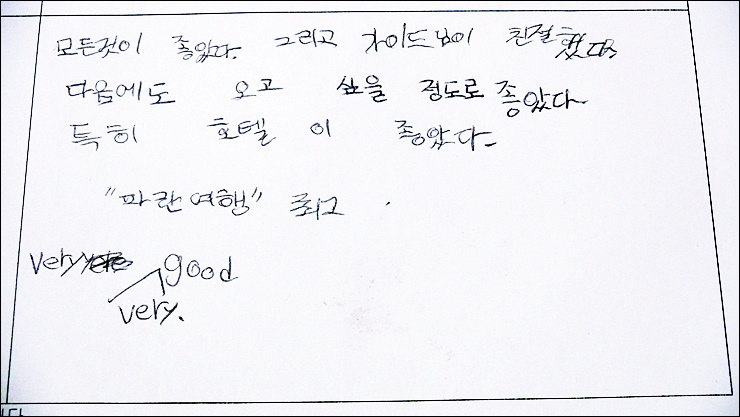 모든것이 좋았다. 그리고 가이드님이 친절했다.
다음에도 오고 싶을 정도로 좋았다.
특히 호텔 이 좋았다.
"파란여행" 최고
very good
very.